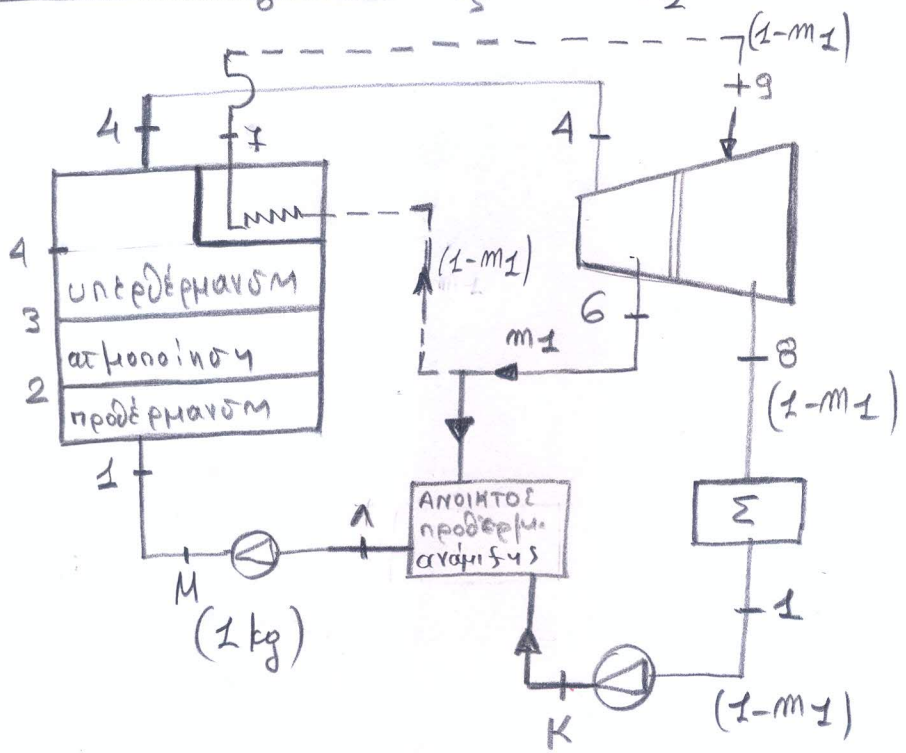 (1-m1)
9
4
7
4
4
υπερθέρμανση
3
ατμοποίηση
2
προθέρμανση
(1-m1)
6
m1
8
(1-m1)
1
Λ
ΑΝΟΙΚΤΟΣ
προθερμ.
ανάμιξης
Σ
M
(1 kg)
1
K
(1-m1)